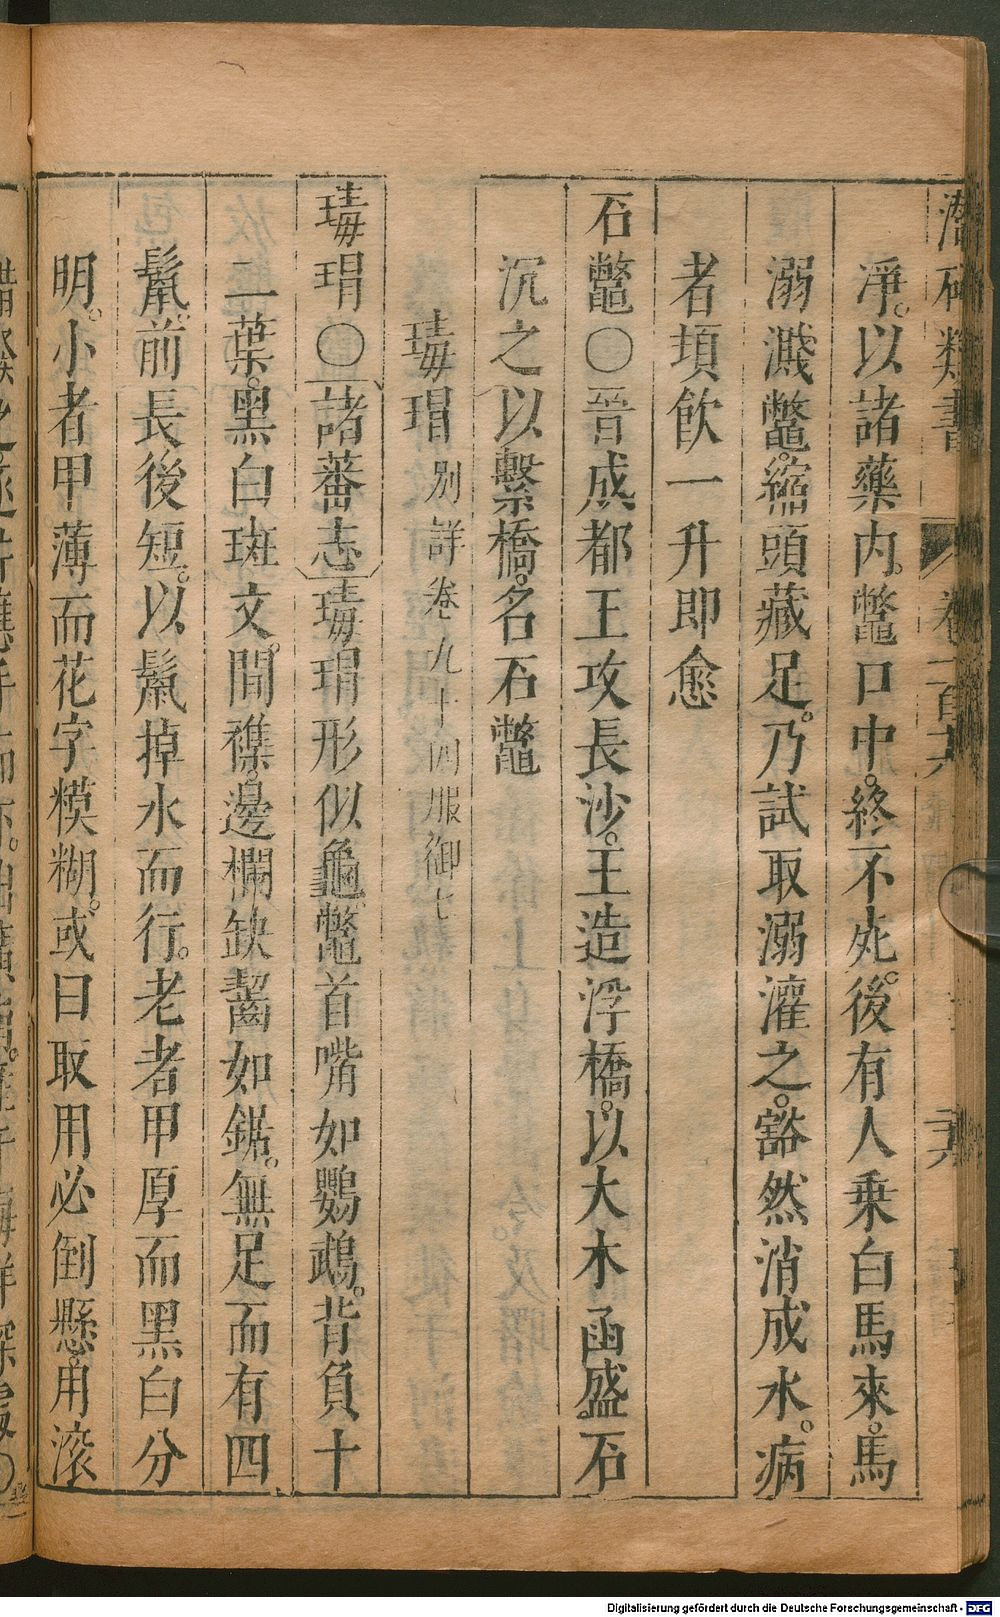 潛確類書 卷一百十六
淨。以諸藥内。鼈口中。終不死。後有人乗白馬來。馬
溺濺鼈。縮頭藏足。乃試取溺灌之。豁然消成水。病
者頃飲一升即愈
石鼈〇晉成都王攻長沙。王造浮橋。以大木函盛石
沉之以繫橋。名石鼈
瑇瑁 别詳卷九十四服御七
瑇瑁〇諸蕃志瑇瑁形似龜鼈首嘴如鸚鵡。背負十
二葉。黑白斑文。間襍。邊欄缺齧如鋸。無足而有四
鬛。前長後短。以鬛掉水而行。老者甲厚而黑白分
明。小者甲薄而花字糢糊。或曰取用必倒懸。用滚
Digitalisierung gefördert durch die Deutsche Forschungsgemeinschaft - DFG